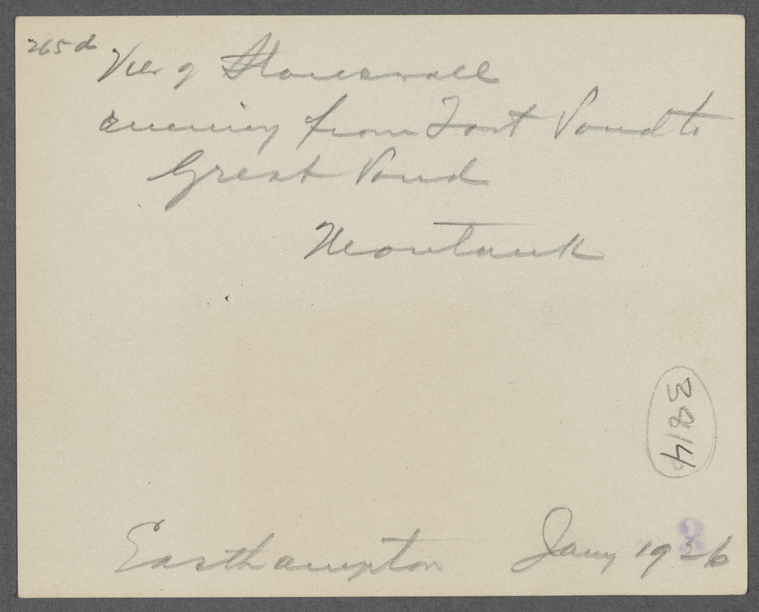 265d
View of Stonewall
running from Fort Pond to
Great Pond
Montauk
3814
Easthampton Jany 1926